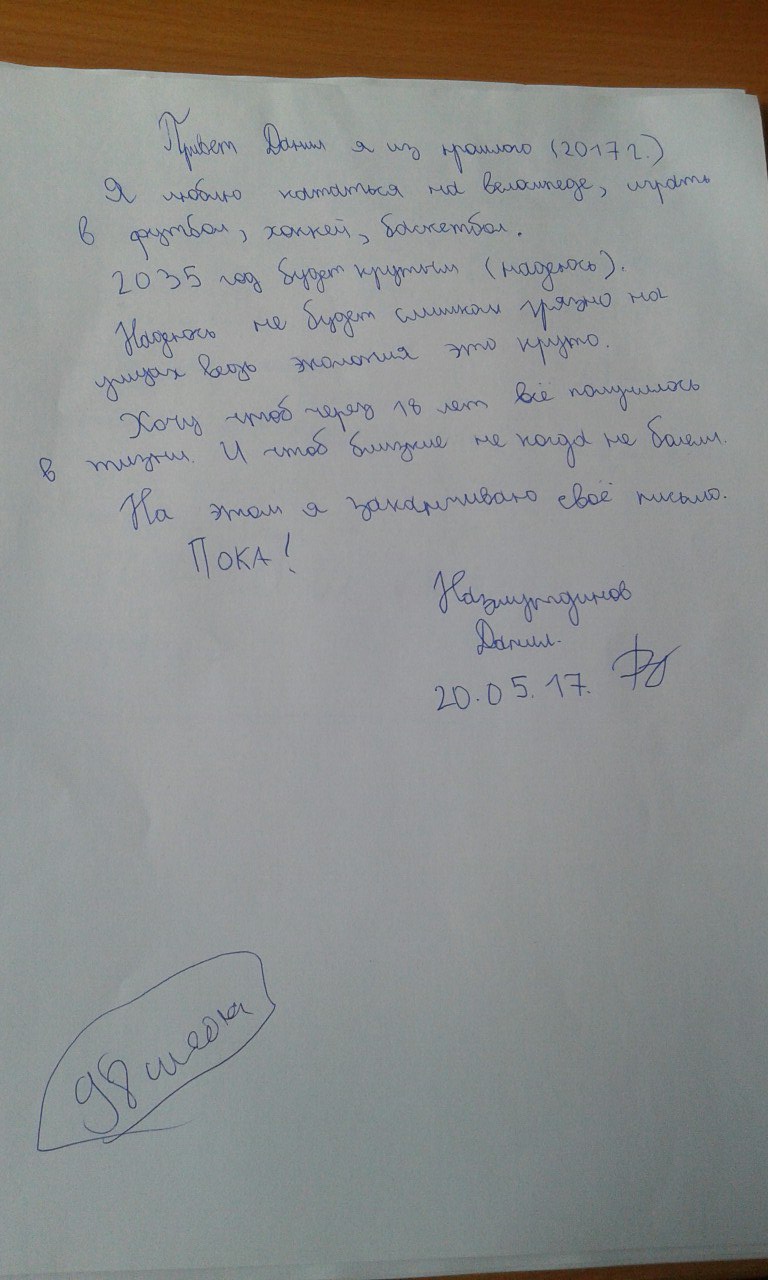 Привет Данил я из прошлого (2017 г.)
Я люблю кататься на велосипеде, играть
в футбол, хоккей, баскетбол.
2035 год будет крутым (надеюсь).
Надеюсь не будет слишком грязно на
улицах ведь экология это круто.
Хочу чтоб через 18 лет всё получилось
в жизни. И чтоб близкие не когда не болели.
На этом я заканчиваю своё письмо.
ПОКА!
Назмутдинов
Данил.
20.05.17.
98 школа